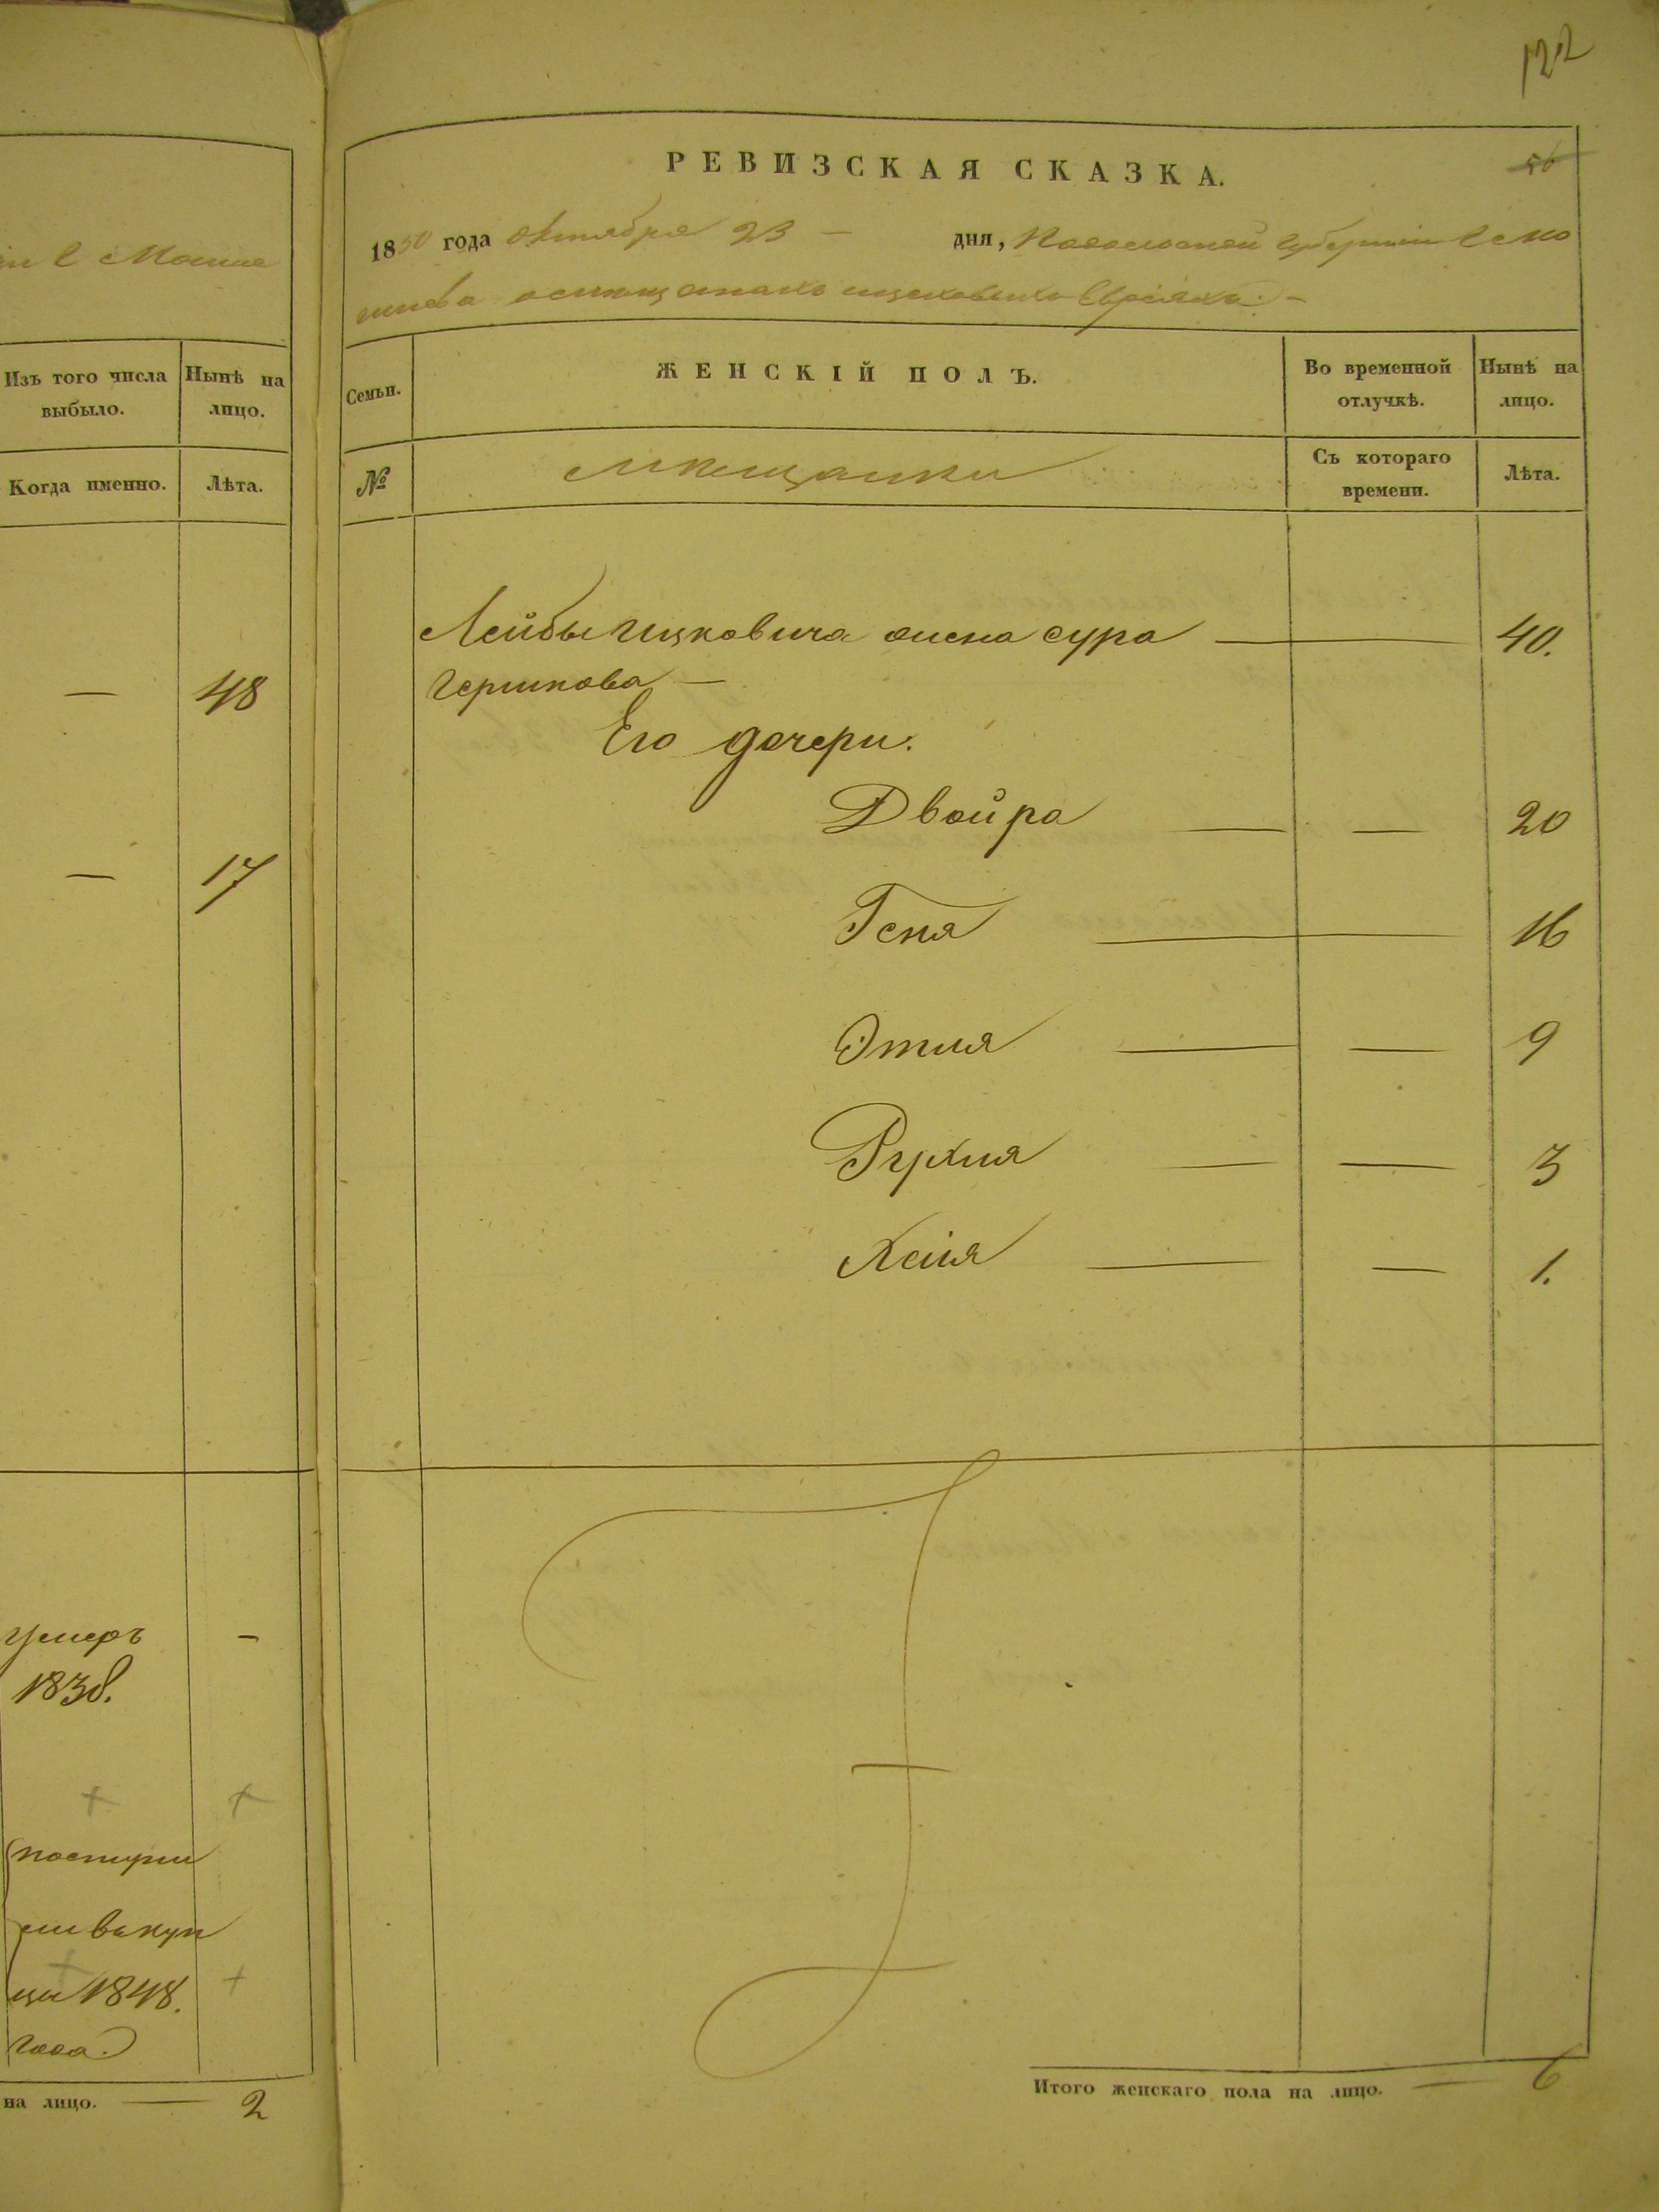 122
РЕВИЗСКАЯ СКАЗКА.
56
1850 года Октября 23 — дня, Губерніи
Евреяхъ. —
Семьи.
ЖЕНСКІЙ ПОЛЪ.
Во временной отлучкѣ.
Нынѣ на лицо.
№
Мѣщанки
Съ котораго времени.
Лѣта.
Лейбы Ицковича жена Сура — 40.
Гершкова —
Его дочери:
Двойра — — 20
Геня — 16
Этля — — 9
Рухля — — 3
Хася — — 1.
Итого женскаго пола на лицо. — 6
Изъ того числа выбыло.
Нынѣ на лицо.
Когда именно.
Лѣта.
— 48
— 17
умеръ -
1838.
+ +
поступи
ли въ куп
цы 1848. +
года.
на лицо. — 2